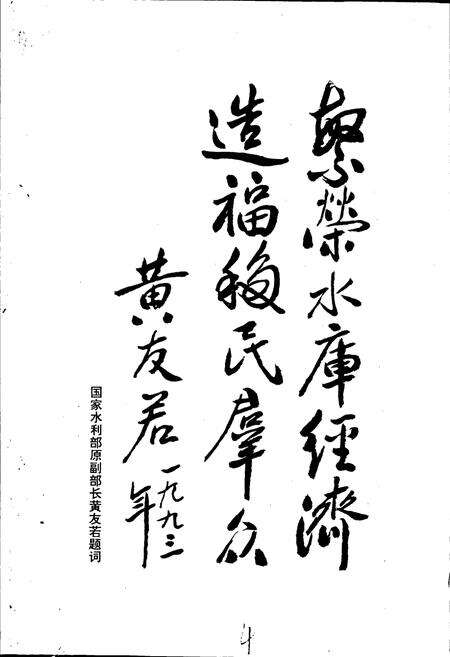 繁榮水庫經濟
造福移民群众
黄友若一九九三年
国家水利部原副部长黄友若题词
4